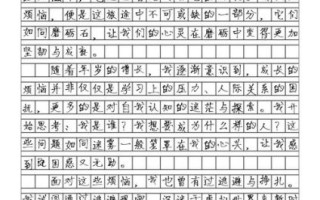 烦恼，便是这旅途中不可或缺的一部分，它们
如同磨砺石，让我们的心灵在磨砺中变得更加
坚韧与成熟。
随着年岁的增长，我逐渐意识到，成长的
烦恼并非仅仅是学习上的压力、人际关系的困
扰，更多的是对自我认知的迷茫与探索。我开
始思考：我是谁？我想要成为什么样的人？这
些问题如同迷雾一般笼罩在我的心头，让我感
到困惑又无助。
面对这些烦恼，我也曾有过逃避与挣扎。